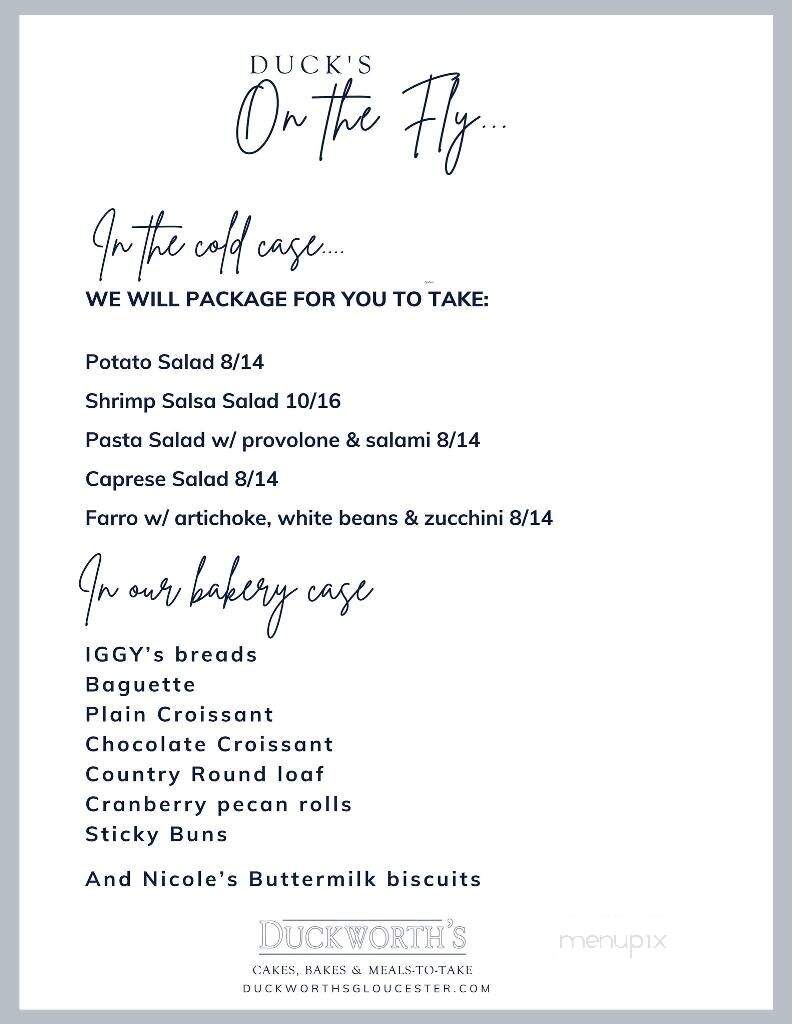 DUCK'S
On the Fly...
In the cold case....
WE WILL PACKAGE FOR YOU TO TAKE:
Potato Salad 8/14
Shrimp Salsa Salad 10/16
Pasta Salad w/ provolone & salami 8/14
Caprese Salad 8/14
Farro w/ artichoke, white beans & zucchini 8/14
In our bakery case
IGGY’s breads
Baguette
Plain Croissant
Chocolate Croissant
Country Round loaf
Cranberry pecan rolls
Sticky Buns
And Nicole’s Buttermilk biscuits
DUCKWORTH'S
CAKES, BAKES & MEALS-TO-TAKE
DUCKWORTHSGLOUCESTER.COM
menupix